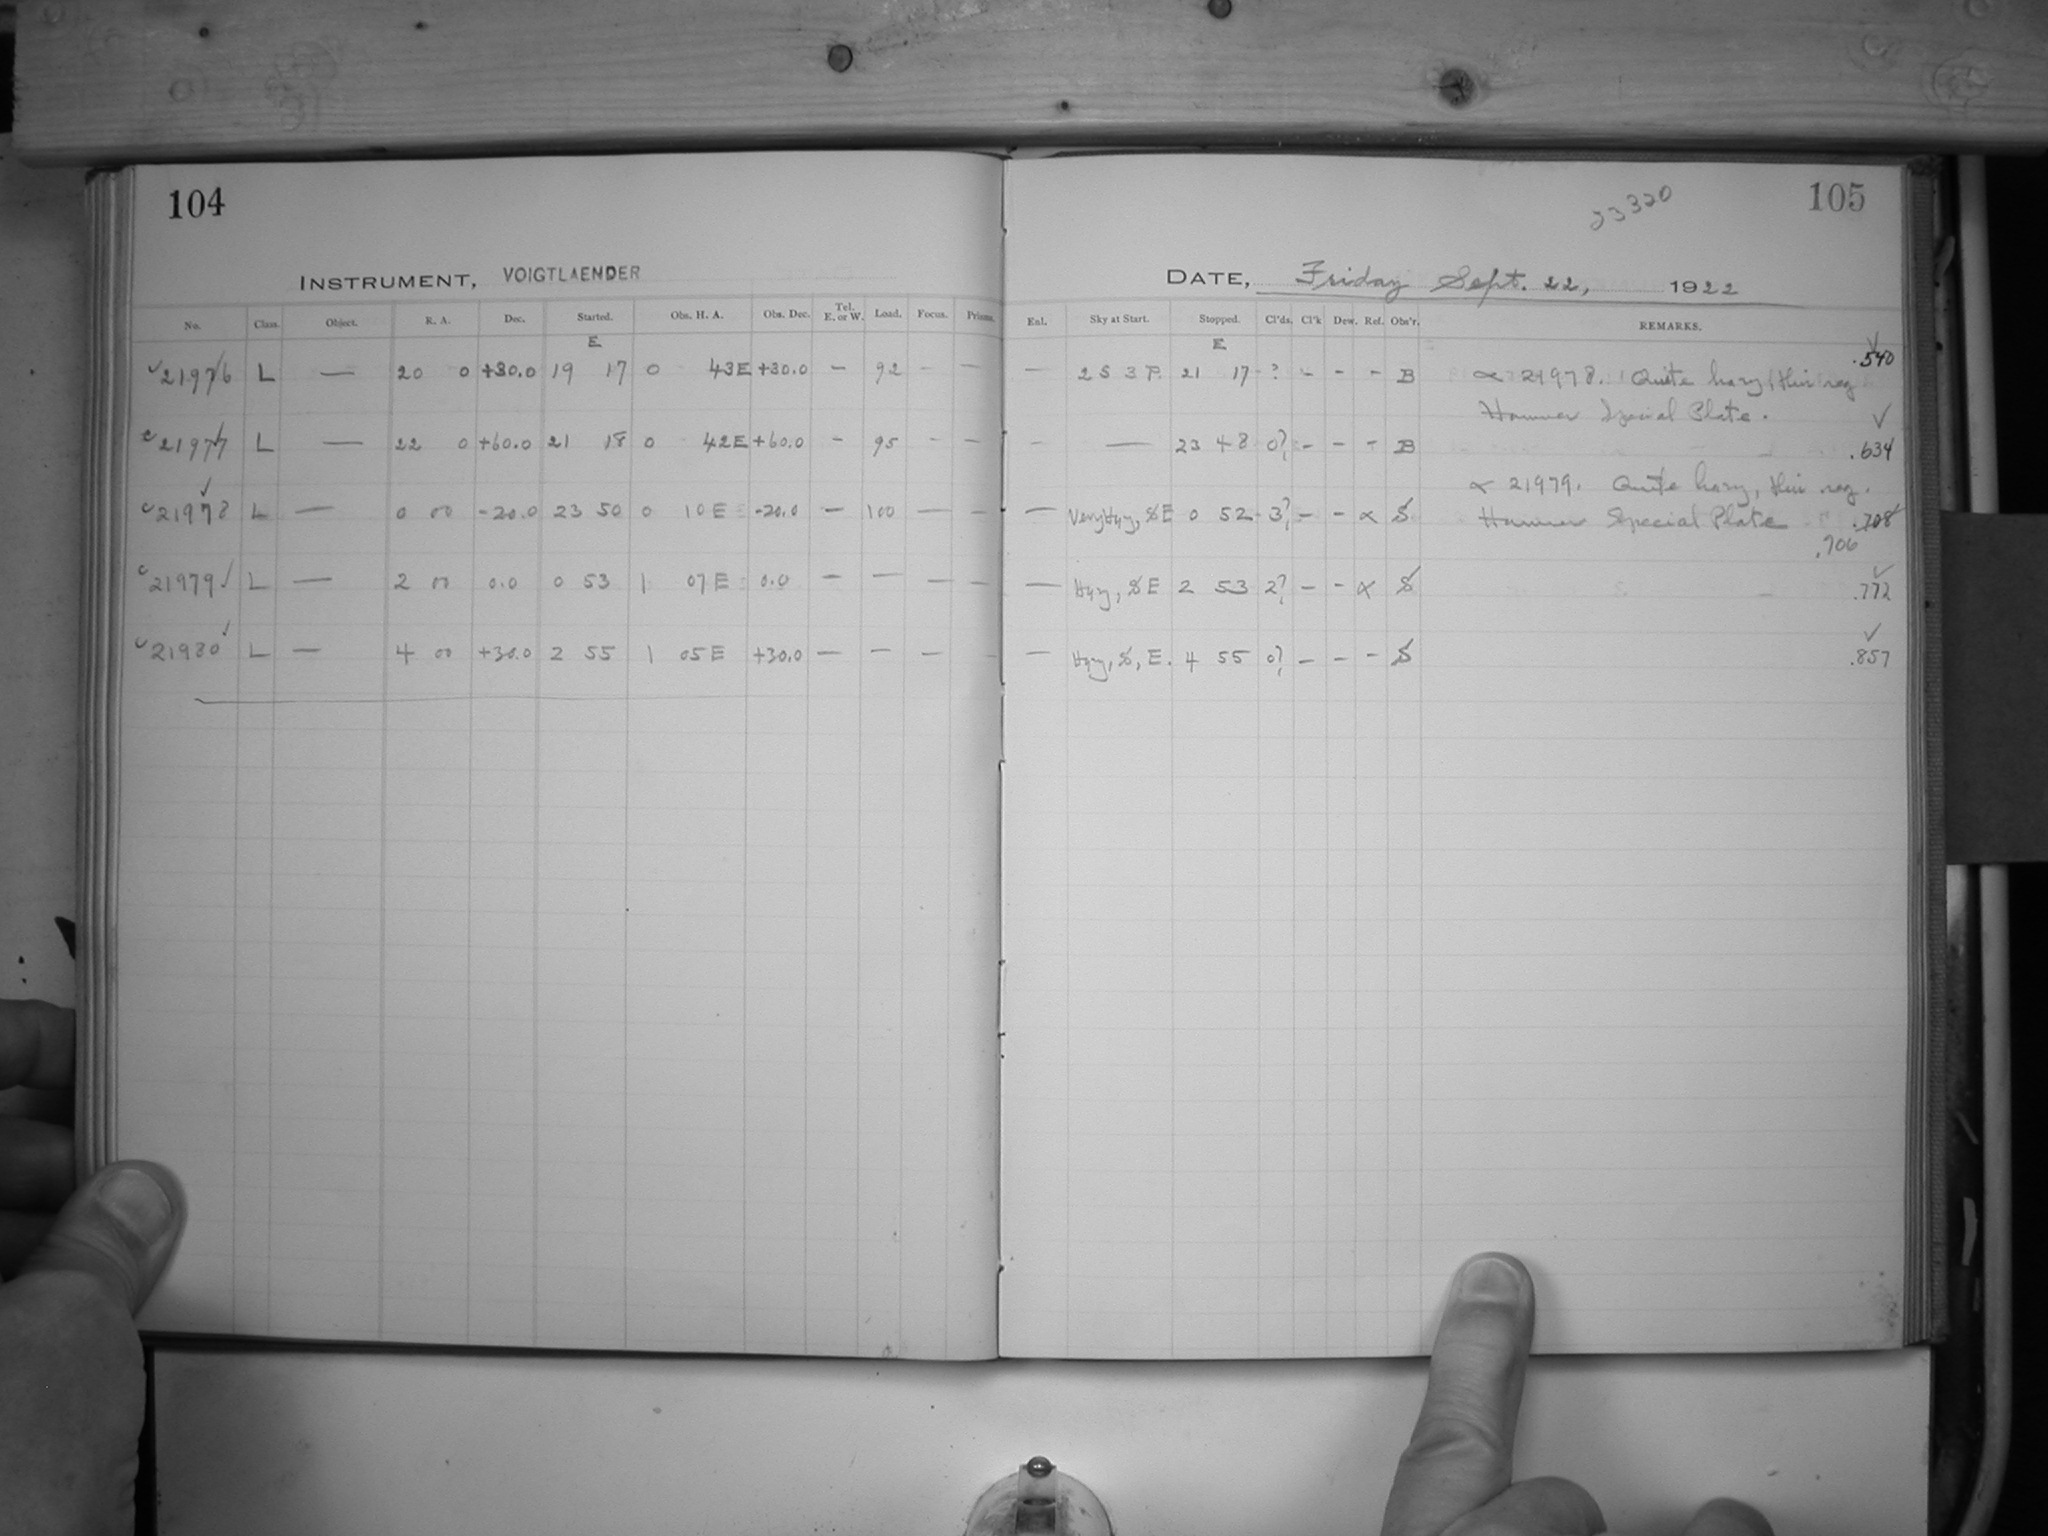 104
INSTRUMENT, VOIGTLAENDER
No. Class. Object. R. A. Dec. Started. Obs. H. A. Obs. Dec. Tel. E. or W. Load. Focus. Prisms.
E
21976 L — 20 0 +30.0 19 17 0 43E +30.0 - 92 - -
21977 L — 22 0 +60.0 21 18 0 42E +60.0 - 95 - -
21978 L — 0 00 -20.0 23 50 0 10E -20.0 - 100 — -
21979 L — 2 00 0.0 0 53 1 07E 0.0 — — — —
21980 L — 4 00 +30.0 2 55 1 05E +30.0 — — — -
105
23320
DATE, Friday Sept. 22, 1922
Enl. Sky at Start. Stopped. Cl'ds. Cl'k Dew. Ref. Obs'r. REMARKS.
E
.540
— 2 S 3 P. 21 17 ? - - - B ∝ 21978. Quite hazy, thin reg
Hammer Special Plate.
- — 23 48 0? - - - B .634
∝ 21979. Quite hazy, thin reg.
— Very Hazy, SE 0 52 3? - - ∝ S Hammer Special Plate .708
.706
— Hazy, SE 2 53 2? - - ∝ S .772
— Hazy, S, E. 4 55 0? - - - S .857